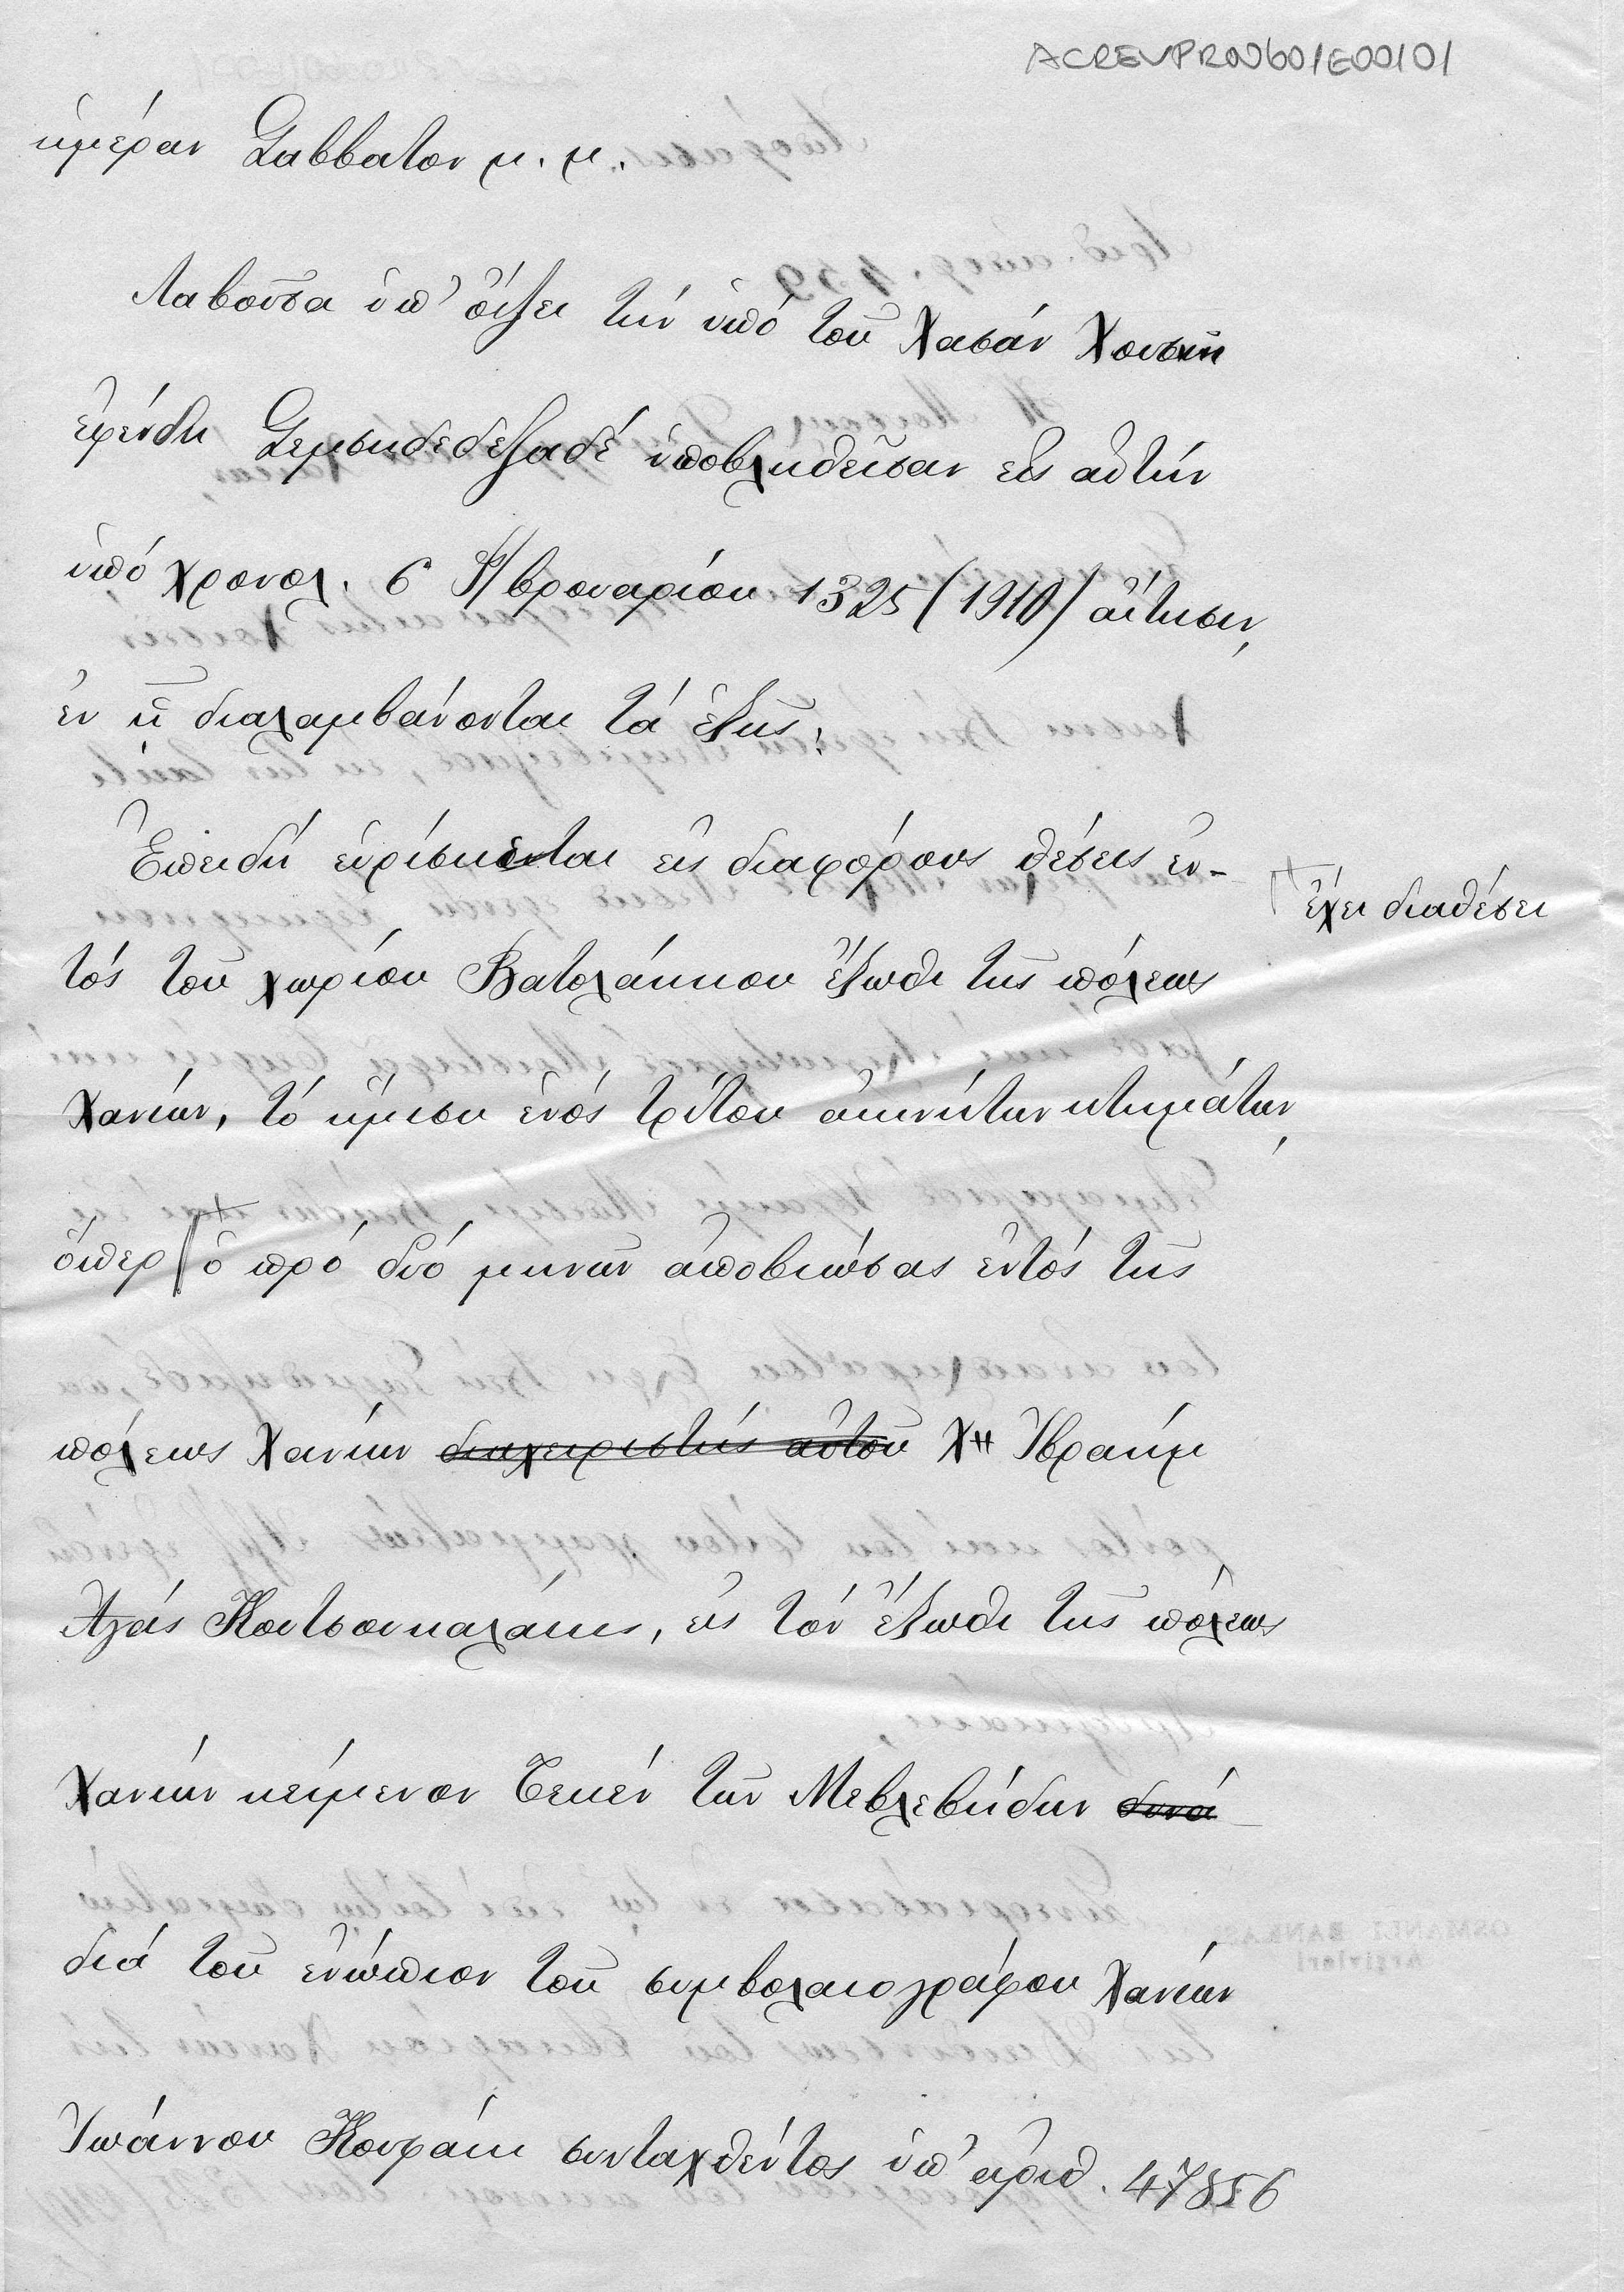 ACREVPRN60/E00101
ἡμέραν Σάββατον μ. μ.
Λαβοῦσα ὑπ' ὄψει τήν ὑπό τοῦ Χασάν Χουσνῆ
ἐφένδη Σεμσηδεδεζαδέ ὑποβληθεῖσαν εἰς αὐτήν
ὑπό χρονολ. 6 Φ/βρουαρίου 1325 (1910) αἴτησιν,
ἐν ᾗ διαλαμβάνονται τά ἑξῆς:
Ἐπειδή εὑρίσκεται εἰς διαφόρους θέσεις ἐν-
τός τοῦ χωρίου Βατολάκκου ἔξωθι τῆς πόλεως
Χανίων, τό ἥμισυ ἑνός τρίτου ἀκινήτων κτημάτων,
ὅπερ ὁ πρό δύο μηνῶν ἀποβιώσας ἐντός τῆς
ἔχει διαθέσει
πόλεως Χανίων διαχειριστής αὐτοῦ Χῆ Ἰβραήμ
Ἀγᾶς Κουτσουκαλάκις, εἰς τόν ἔξωθι τῆς πόλεως
Χανίων κείμενον Τεκέν τῶν Μεβλεβήδων δυνά
διά τοῦ ἐνώπιον τοῦ συμβολαιογράφου Χανίων
Ἰωάννου Κουφάκι συνταχθέντος ὑπ' ἀριθ. 47856